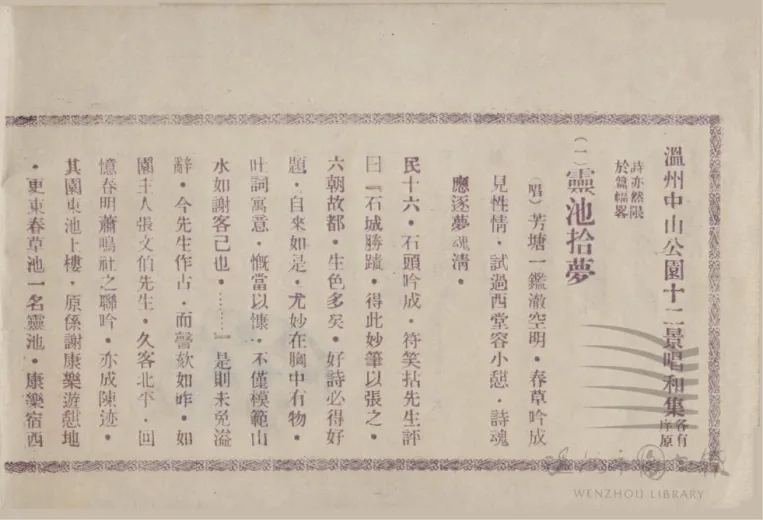 溫州中山公園十二景唱和集 各有原序
詩亦然限於篇幅畧
(一)靈池拾夢
(唱)芳塘一鑑澈空明・春草吟成
見性情・試過西堂容小憩・詩魂
應逐夢魂淸・
民十六・石頭吟成・符笑拈先生評
曰『石城勝蹟・得此妙筆以張之・
六朝故都・生色多矣・好詩必得好
題・自來如是・尤妙在胸中有物・
吐詞寓意・慨當以慷・不僅模範山
水如謝客已也・………』是則未免溢
辭・今先生作古・而謦欬如昨・如
園主人張文伯先生・久客北平・回
憶春明蕭鳴社之聯吟・亦成陳迹・
其園東池上樓・原係謝康樂遊憩地
・更東春草池一名靈池・康樂宿西
WENZHOU LIBRARY